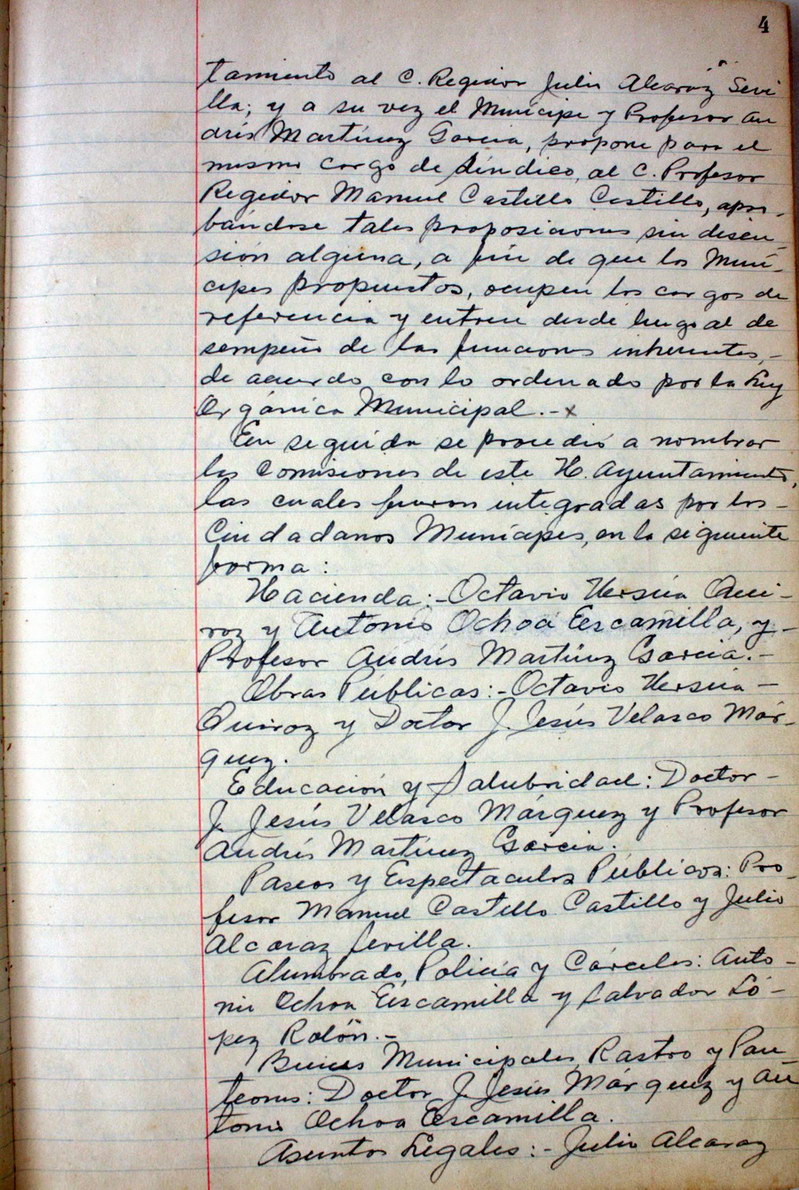 4
tamiento al C. Regidor Julio Alcaraz Sevi
lla; y a su vez el Munícipe y Profesor An
drés Martínez García, propone para el
mismo cargo de Síndico, al C. Profesor
Regidor Manuel Castillo Castillo, apro-
bándose tales proposiciones sin discu-
sión alguna, a fin de que los Muní-
cipes propuestos, ocupen los cargos de
referencia y entren desde luego al de
sempeño de las funciones inherentes,-
de acuerdo con lo ordenado por la Ley
Orgánica Municipal.-x
En seguida se procedió a nombrar
las Comisiones de este H. Ayuntamiento,
las cuales fueron integradas por los-
Ciudadanos Munícipes, en la siguiente
forma:
Hacienda:-Octavio Ursúa Qui-
roz y Antonio Ochoa Escamilla, y-
Profesor Andrés Martínez García.-
Obras Públicas:-Octavio Ursúa-
Quiroz y Doctor J. Jesús Velasco Már-
quez.
Educación y Salubridad: Doctor-
J. Jesús Velasco Márquez y Profesor
Andrés Martínez García.
Paseos y Espectaculos Públicos: Pro-
fesor Manuel Castillo Castillo y Julio
Alcaraz Sevilla.
Alumbrado, Policía y Cárceles: Anto-
nio Ochoa Escamilla y Salvador Ló-
pez Rolón.-
Bienes Municipales, Rastro y Pan-
teones: Doctor J. Jesús Márquez y An
tonio Ochoa Escamilla.
Asuntos Legales:-Julio Alcaraz